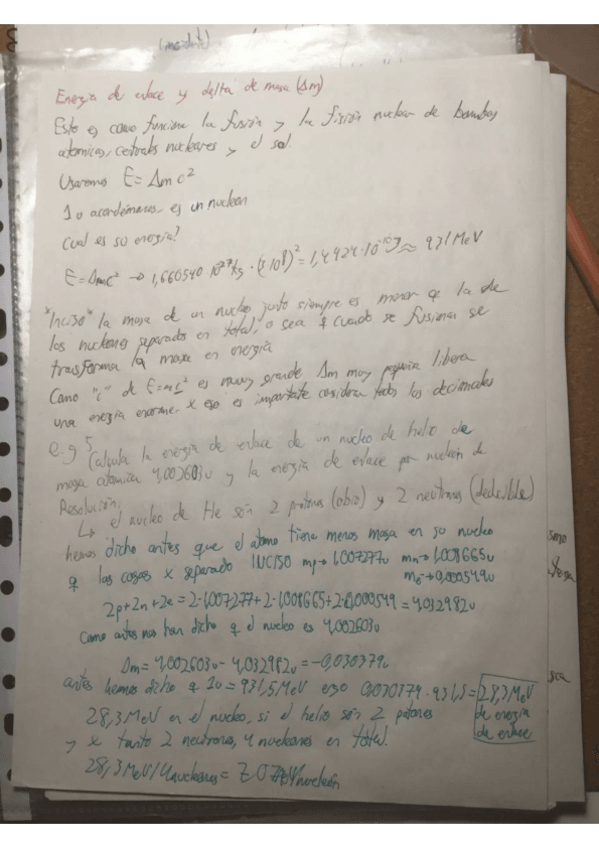 (
Energia de enlace y delta de masa (Δm)
Este es como funciona la fusión y la fisión nuclear de bombas
atomicas, centrales nucleares y el sol.
Usaremos E = Δm c²
1 u acordémonos, es un nucleon
Cual es su energia?
E = Δmc² → 1,660540 10⁻²⁷kg · (3·10⁸)² = 1,4924·10⁻¹⁰J ≈ 931 MeV
*Inciso* la masa de un nucleo junto siempre es menor q la de
los nucleones separados en total, o sea q cuando se fusionan se
trasforma la masa en energia
Como "c" de E=mc² es muy grande Δm muy pequeña libera
una energia enorme x eso es importate considerar todos los decimales
e.g 5 Calcula la energia de enlace de un nucleo de helio de
masa atomica 4,002603u y la energia de enlace por nucleón de
Resolución:
↳ el nucleo de He són 2 protones (obvio) y 2 neutrones (deducible)
hemos dicho antes que el atomo tiene menos masa en su nucleo
q las cosas x separado INCISO mp→1,007277u mn→1,008665u
me→0,000549u
2p+2n+2e = 2·1,007277+2·1,008665+2·0,000549 = 4,032982u
Como antes nos han dicho q el nucleo es 4,002603u
Δm = 4,002603u - 4,032982u = -0,030379u
antes hemos dicho q 1u = 931,5MeV ergo 0,030379·931,5 = 28,3MeV
de energia
de enlace
28,3MeV en el nucleo, si el helio són 2 protones
y x tanto 2 neutrones, 4 nucleones en total.
28,3MeV/4nucleones = 7,07 /nucleón